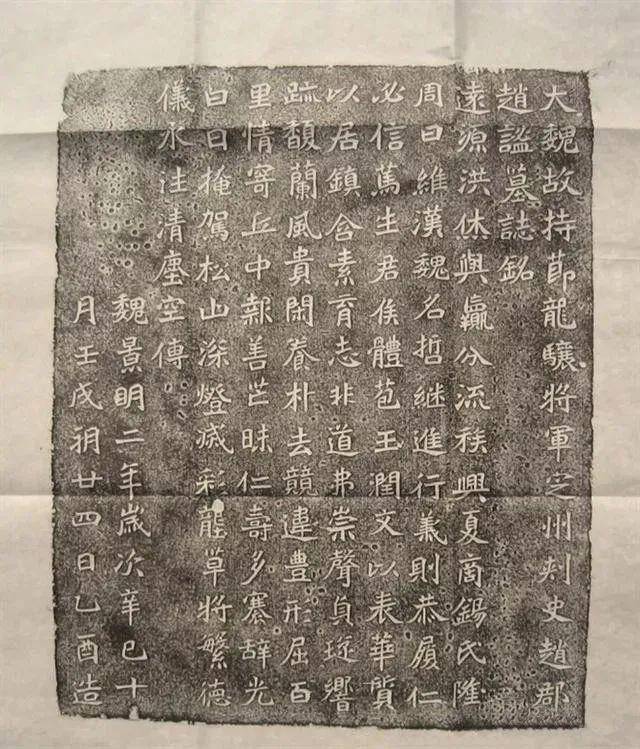 大魏故持節龍驤將軍定州刺史趙郡
趙謐墓誌銘
遠源洪休與嬴分流族興夏商錫氏隆
周曰維漢魏名哲継進行義則恭履仁
必信篤生君侯體苞玉潤文以表華質
以居鎮含素育志非道弗崇聲貞琁響
跡馥蘭風貴閑養朴去競違豊形屈百
里情寄丘中報善芒昧仁壽多褰辭光
白日掩駕松山深燈滅彩壟草將繁德
儀永往清塵空傳
魏景明二年歲次辛巳十
月壬戌朔廿四日乙酉造